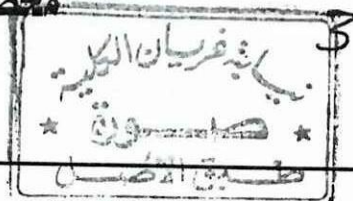 نيابة غريان الكلية
صورة
طبق الأصل